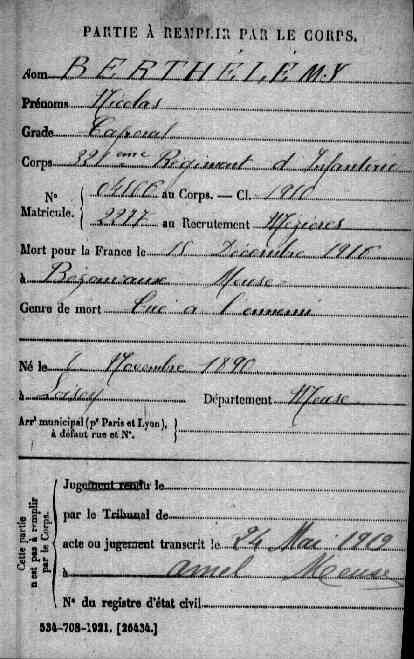 PARTIE À REMPLIR PAR LE CORPS.
Nom BERTHÉLÉMY
Prénoms Nicolas
Grade Caporal
Corps eme Régiment d'Infanterie
Nº au Corps. — Cl. 1910
Matricule. 2277 au Recrutement Mézières
Mort pour la France le 15 Décembre 1916
à Bezonvaux Meuse
Genre de mort Tué à l'ennemi
Né le Novembre 1890
à Loison Département Meuse
Arrt municipal (pr Paris et Lyon),
à défaut rue et Nº.
Cette partie
n'est pas à remplir
par le Corps.
Jugement rendu le
par le Tribunal de
acte ou jugement transcrit le 24 Mai 1919
à Amel Meuse
Nº du registre d'état civil
534-708-1921. [26434.]